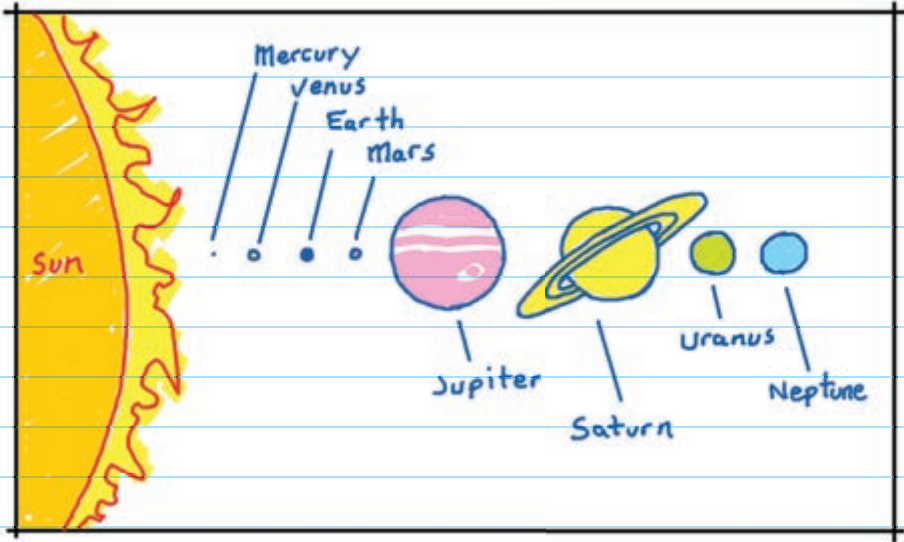 Mercury
Venus
Earth
Mars
Sun
Jupiter
Saturn
Uranus
Neptune